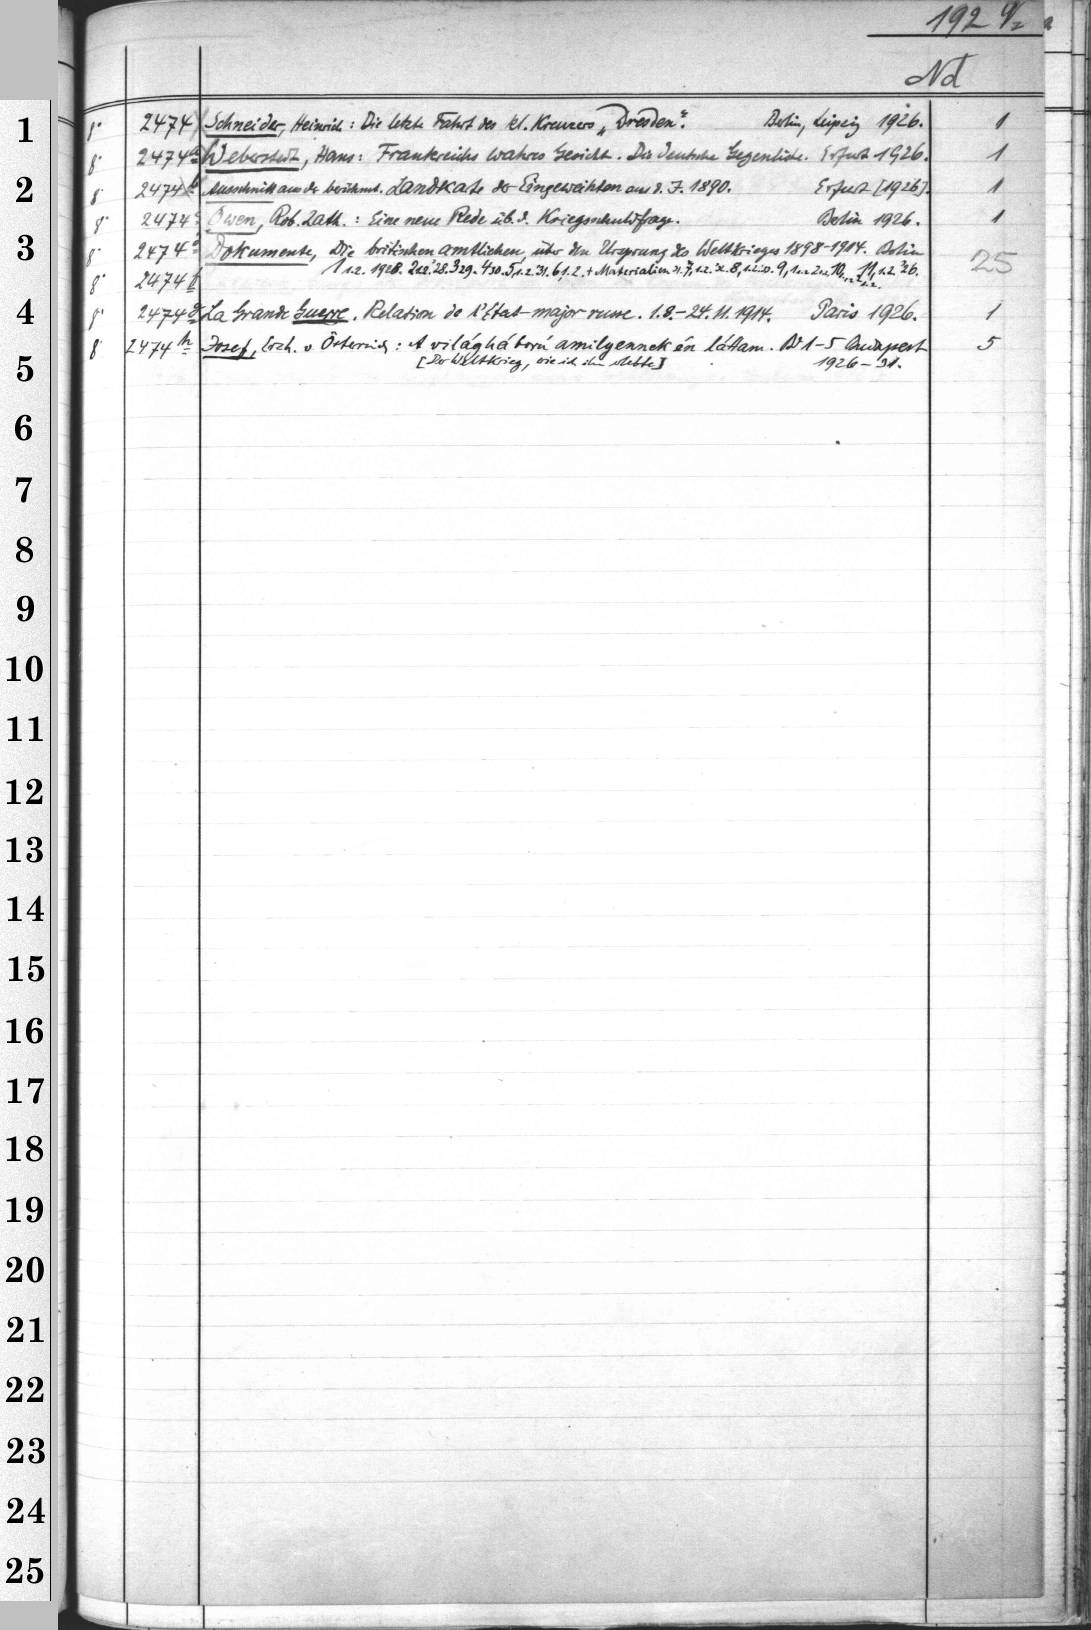 192
Nd
8° 2474 Schneider, Heinrich: Die letzte Fahrt des kl. Kreuzers „Dresden". Berlin, Leipzig 1926. 1
8° 2474a Weberstedt, Hans: Frankreichs wahres Gesicht. Die deutsche Gegenliste. Erfurt 1926. 1
8° 2474b Ausschnitt aus der berühmt. Landkarte der Eingeweihten aus d. J. 1890. Erfurt [1926]. 1
8° 2474c Owen, Rob. Lath.: Eine neue Rede üb. d. Kriegsschuldfrage. Berlin 1926. 1
8° 2474d Dokumente, Die britischen amtlichen, über den Ursprung des Weltkrieges 1898-1914. Berlin 25
8° 2474f 1 1.2. 1928. + Materialien
8° 2474g La Grande Guerre. Relation de l'État-major russe. 1.8.-24.11.1914. Paris 1926. 1
8° 2474h Josef, Erzh. v Österreich: A világháború amilyennek én láttam. Bd 1-5 Budapest 5
[Der Weltkrieg, wie ich ihn erlebte] 1926-31.
1
2
3
4
5
6
7
8
9
10
11
12
13
14
15
16
17
18
19
20
21
22
23
24
25